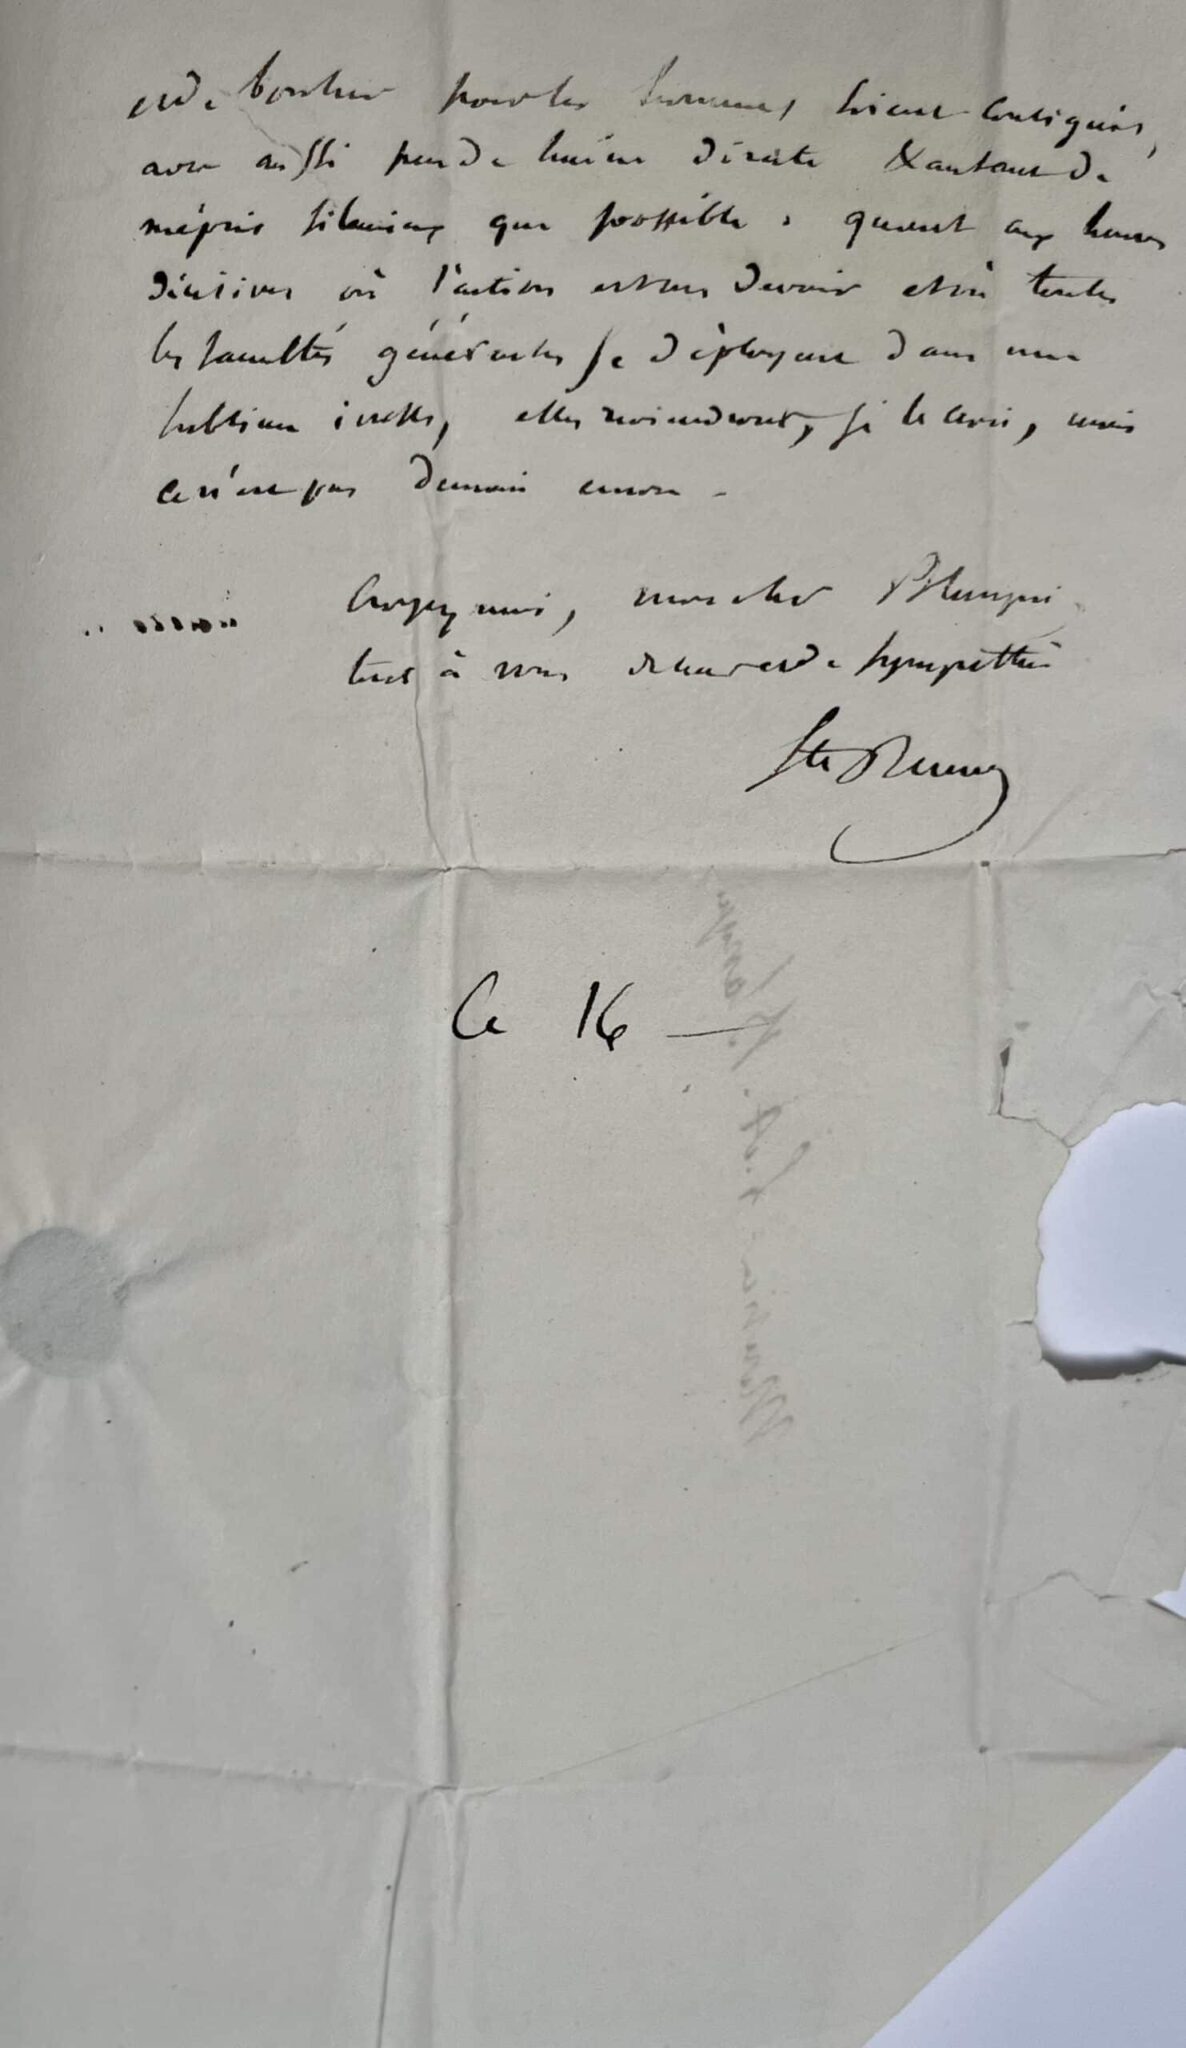 et de bonheur pour les hommes, soient consignées,
avec aussi peu de haine directe & autant de
mépris silencieux que possible : quant aux heures
décisives où l'action est un devoir et où toutes
les facultés généreuses se déployent dans une
sublime ivresse, elles reviendront, je le crois, mais
ce n'est pas demain encore.
Croyez moi, mon cher
tout à vous de cœur et de sympathie
Ste Beuve
Ce 16 —